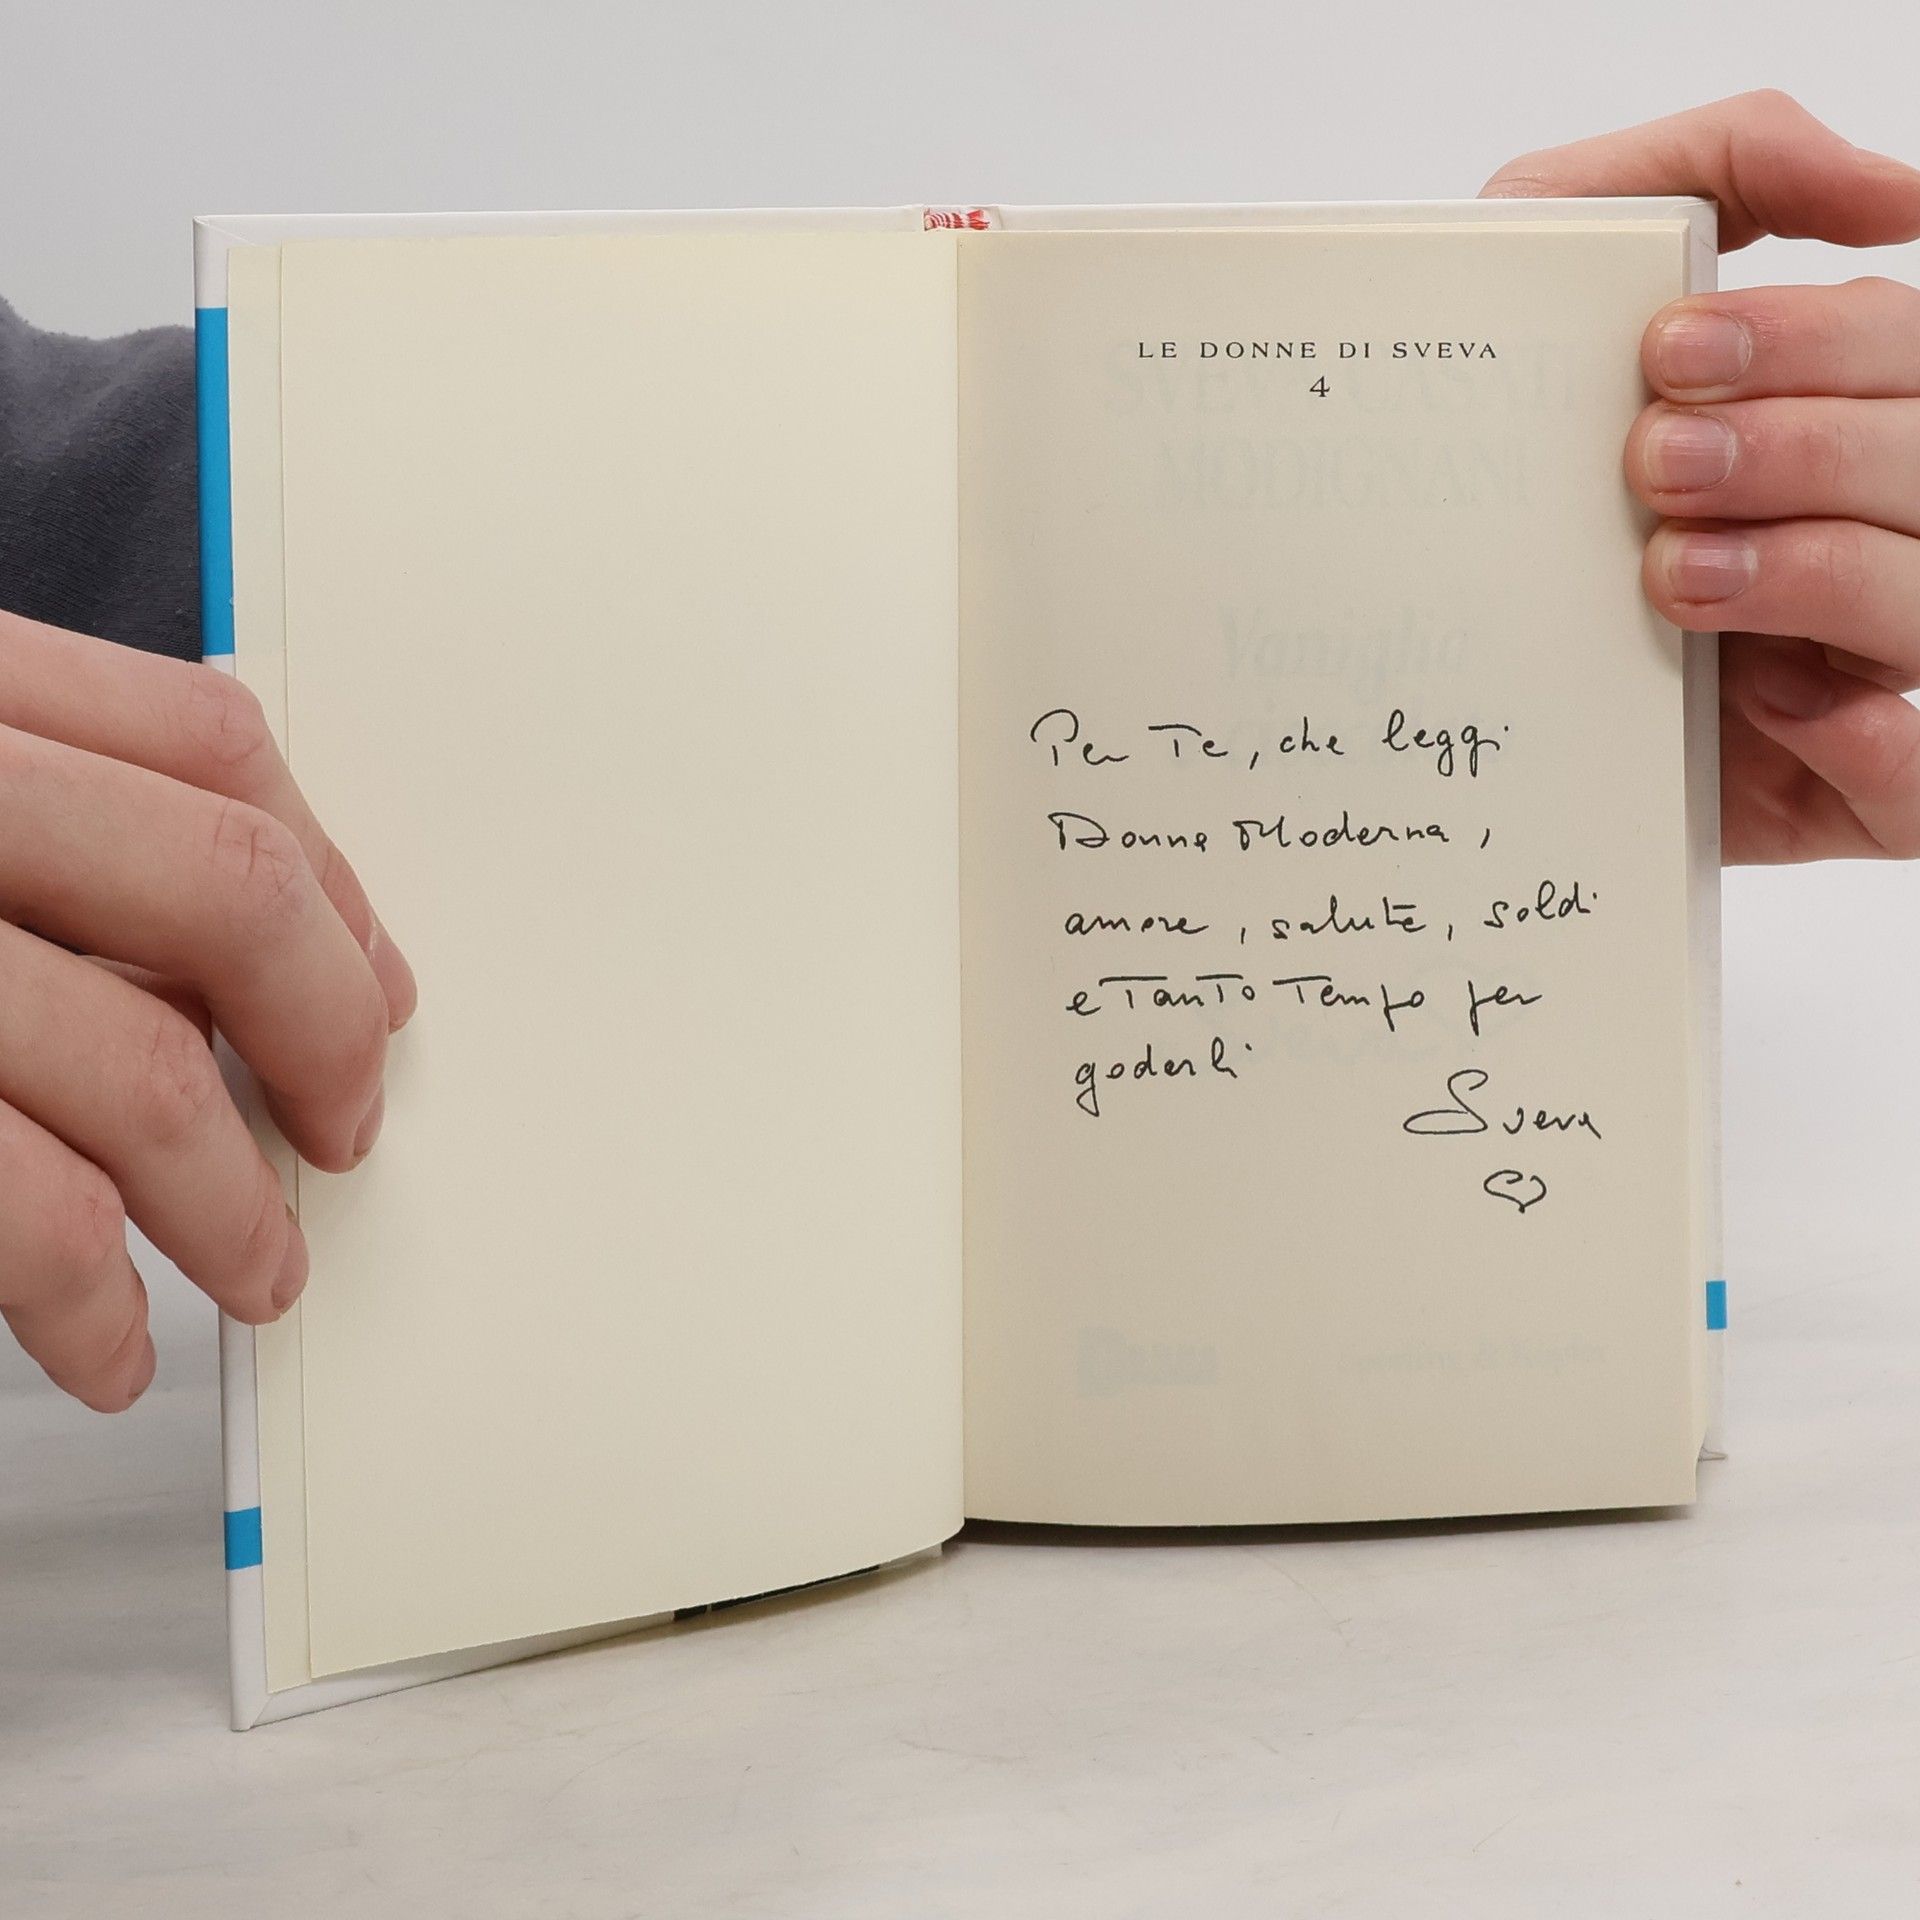 LE DONNE DI SVEVA
4
Per Te, che leggi
Donna Moderna,
amore, salute, soldi
e Tanto Tempo per
goderli
Sveva